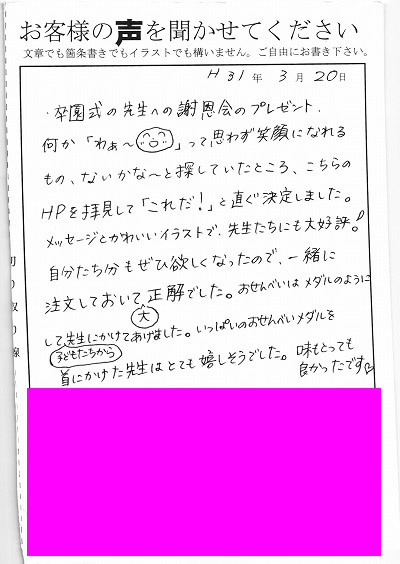 お客様の声を聞かせてください
文章でも箇条書きでもイラストでも構いません。ご自由にお書き下さい。
H 31 年 3 月 20 日
・卒園式の先生への謝恩会のプレゼント、
何か「わぁ〜」って思わず笑顔になれる
もの、ないかな〜と探していたところ、こちらの
HPを拝見して「これだ!」と直ぐ決定しました。
メッセージとかわいいイラストで、先生たちにも大好評!
自分たち分もぜひ欲しくなったので、一緒に
注文しておいて、大正解でした。おせんべいはメダルのように
して子どもたちから先生にかけてあげました。いっぱいのおせんべいメダルを
首にかけた先生はとても嬉しそうでした。味もとっても
良かったです♡
切り取り線